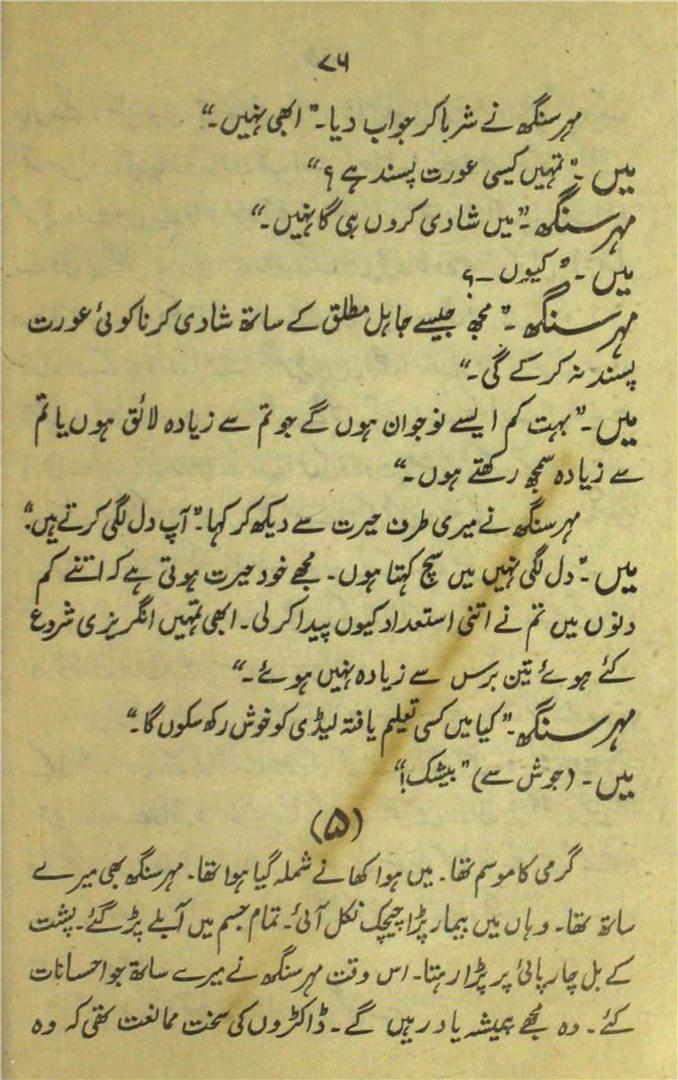 ۷۶
مہر سنگھ نے شرما کر جواب دیا۔" ابھی نہیں۔"
میں ۔" تمہیں کیسی عورت پسند ہے ؟"
مہر سنگھ ۔" میں شادی کروں ہی گا نہیں۔"
میں ۔" کیوں ۔؟
مہر سنگھ ۔" مجھ جیسے جاہل مطلق کے ساتھ شادی کرنا کوئی عورت
پسند نہ کرے گی۔"
میں ۔" بہت کم ایسے نوجوان ہوں گے جو تم سے زیادہ لائق ہوں یا تم
سے زیادہ سمجھ رکھتے ہوں۔"
مہر سنگھ نے میری طرف حیرت سے دیکھ کر کہا۔" آپ دل لگی کرتے ہیں۔"
میں ۔" دل لگی نہیں میں سچ کہتا ہوں۔ مجھے خود حیرت ہوتی ہے کہ اتنے کم
دنوں میں تم نے اتنی استعداد کیوں پیدا کر لی۔ ابھی تمہیں انگریزی شروع
کئے ہوئے تین برس سے زیادہ نہیں ہوئے۔"
مہر سنگھ ۔" کیا میں کسی تعلیم یافتہ لیڈی کو خوش رکھ سکوں گا۔"
میں ۔ (جوش سے) "بیشک!"
(۵)
گرمی کا موسم تھا۔ میں ہوا کھانے شملہ گیا ہوا تھا۔ مہر سنگھ بھی میرے
ساتھ تھا۔ وہاں میں بیمار پڑا چیچک نکل آئی۔ تمام جسم میں آبلے پڑ گئے۔ پشت
کے بل چارپائی پر پڑا رہتا۔ اس وقت مہر سنگھ نے میرے ساتھ جو احسانات
کئے۔ وہ مجھے ہمیشہ یاد رہیں گے۔ ڈاکٹروں کی سخت ممانعت تھی کہ وہ